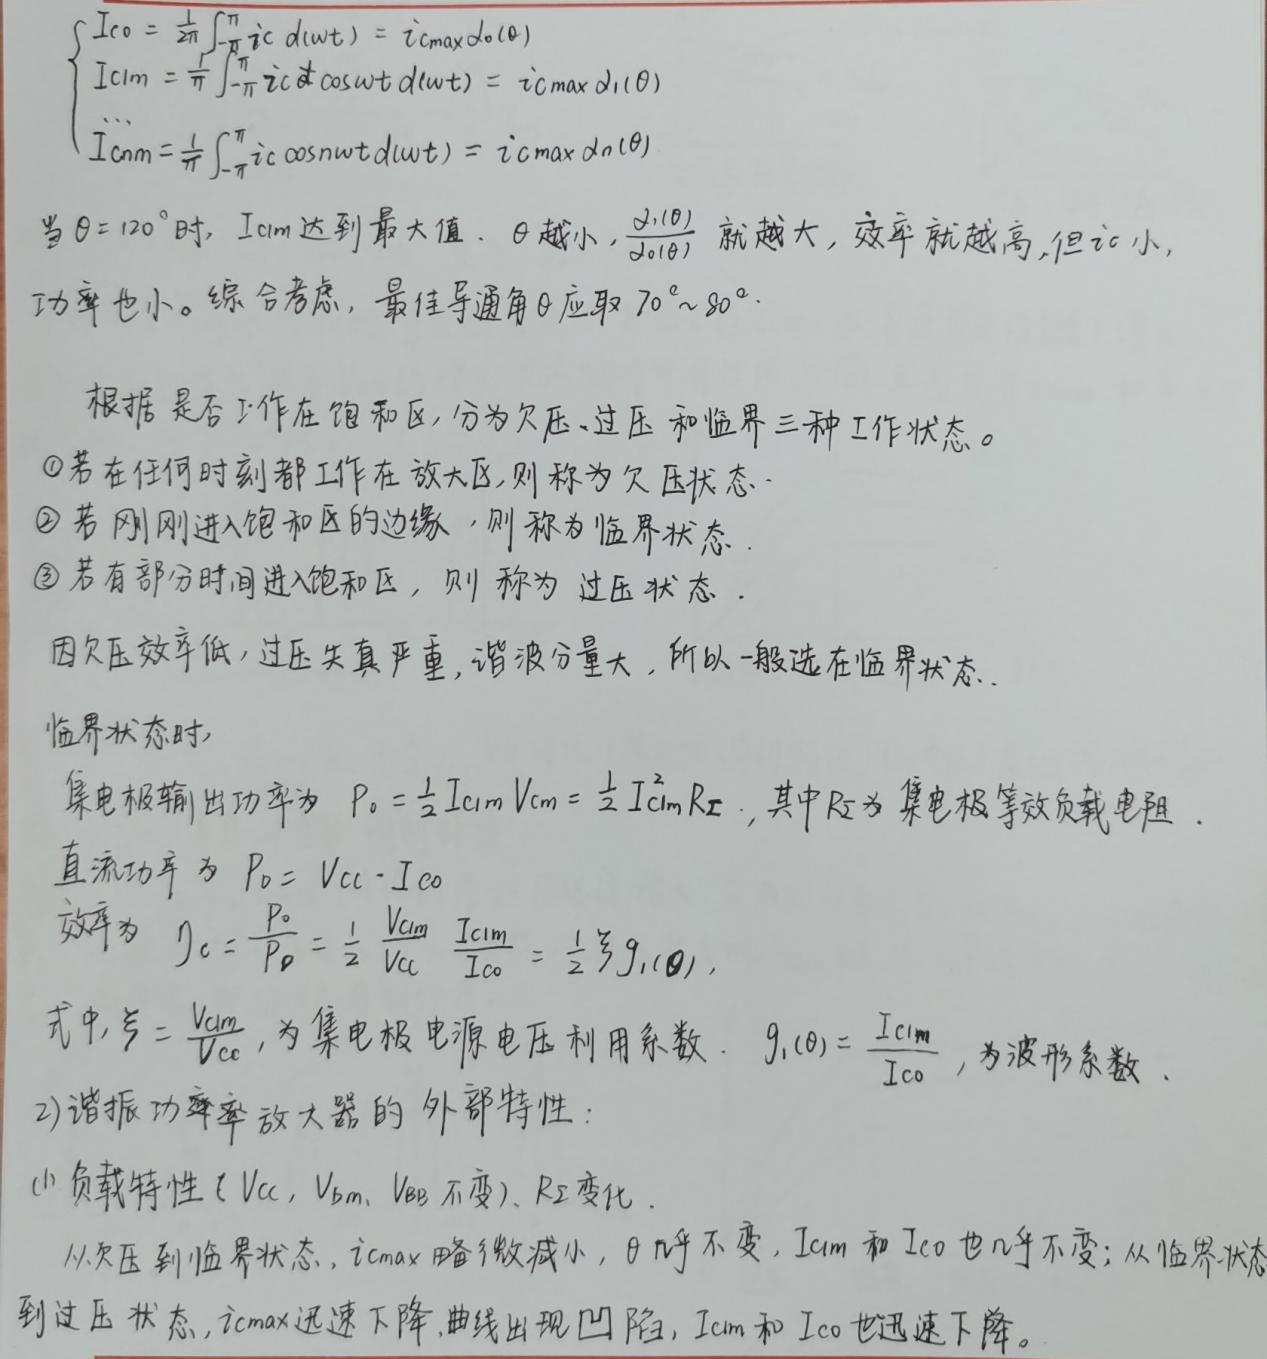 Ico = 1/2π ∫_{-π}^{π} ic d(ωt) = icmax α₀(θ)
Ic1m = 1/π ∫_{-π}^{π} ic cosωt d(ωt) = icmax α₁(θ)
...
Icnm = 1/π ∫_{-π}^{π} ic cosnωt d(ωt) = icmax αn(θ)
当θ=120°时, Ic1m达到最大值. θ越小, α₁(θ)/α₀(θ) 就越大, 效率就越高,但ic小,
功率也小。综合考虑, 最佳导通角θ应取70°~80°.
根据是否工作在饱和区,分为欠压、过压和临界三种工作状态。
①若在任何时刻都工作在放大区,则称为欠压状态.
②若刚刚进入饱和区的边缘,则称为临界状态.
③若有部分时间进入饱和区,则称为过压状态.
因欠压效率低,过压失真严重,谐波分量大,所以一般选在临界状态.
临界状态时,
集电极输出功率为 Po = 1/2 Ic1m Vcm = 1/2 I²c1m RΣ, 其中RΣ为集电极等效负载电阻.
直流功率为 PD = Vcc · Ico
效率为 ηc = Po/PD = 1/2 Vc1m/Vcc Ic1m/Ico = 1/2 ξ g₁(θ),
式中,ξ = Vc1m/Vcc,为集电极电源电压利用系数. g₁(θ) = Ic1m/Ico,为波形系数.
2)谐振功率放大器的外部特性:
(1) 负载特性(Vcc, Vbm、VBB不变)、RΣ变化.
从欠压到临界状态, icmax略微减小, θ几乎不变, Ic1m和Ico也几乎不变; 从临界状态
到过压状态, icmax迅速下降,曲线出现凹陷, Ic1m和Ico也迅速下降。